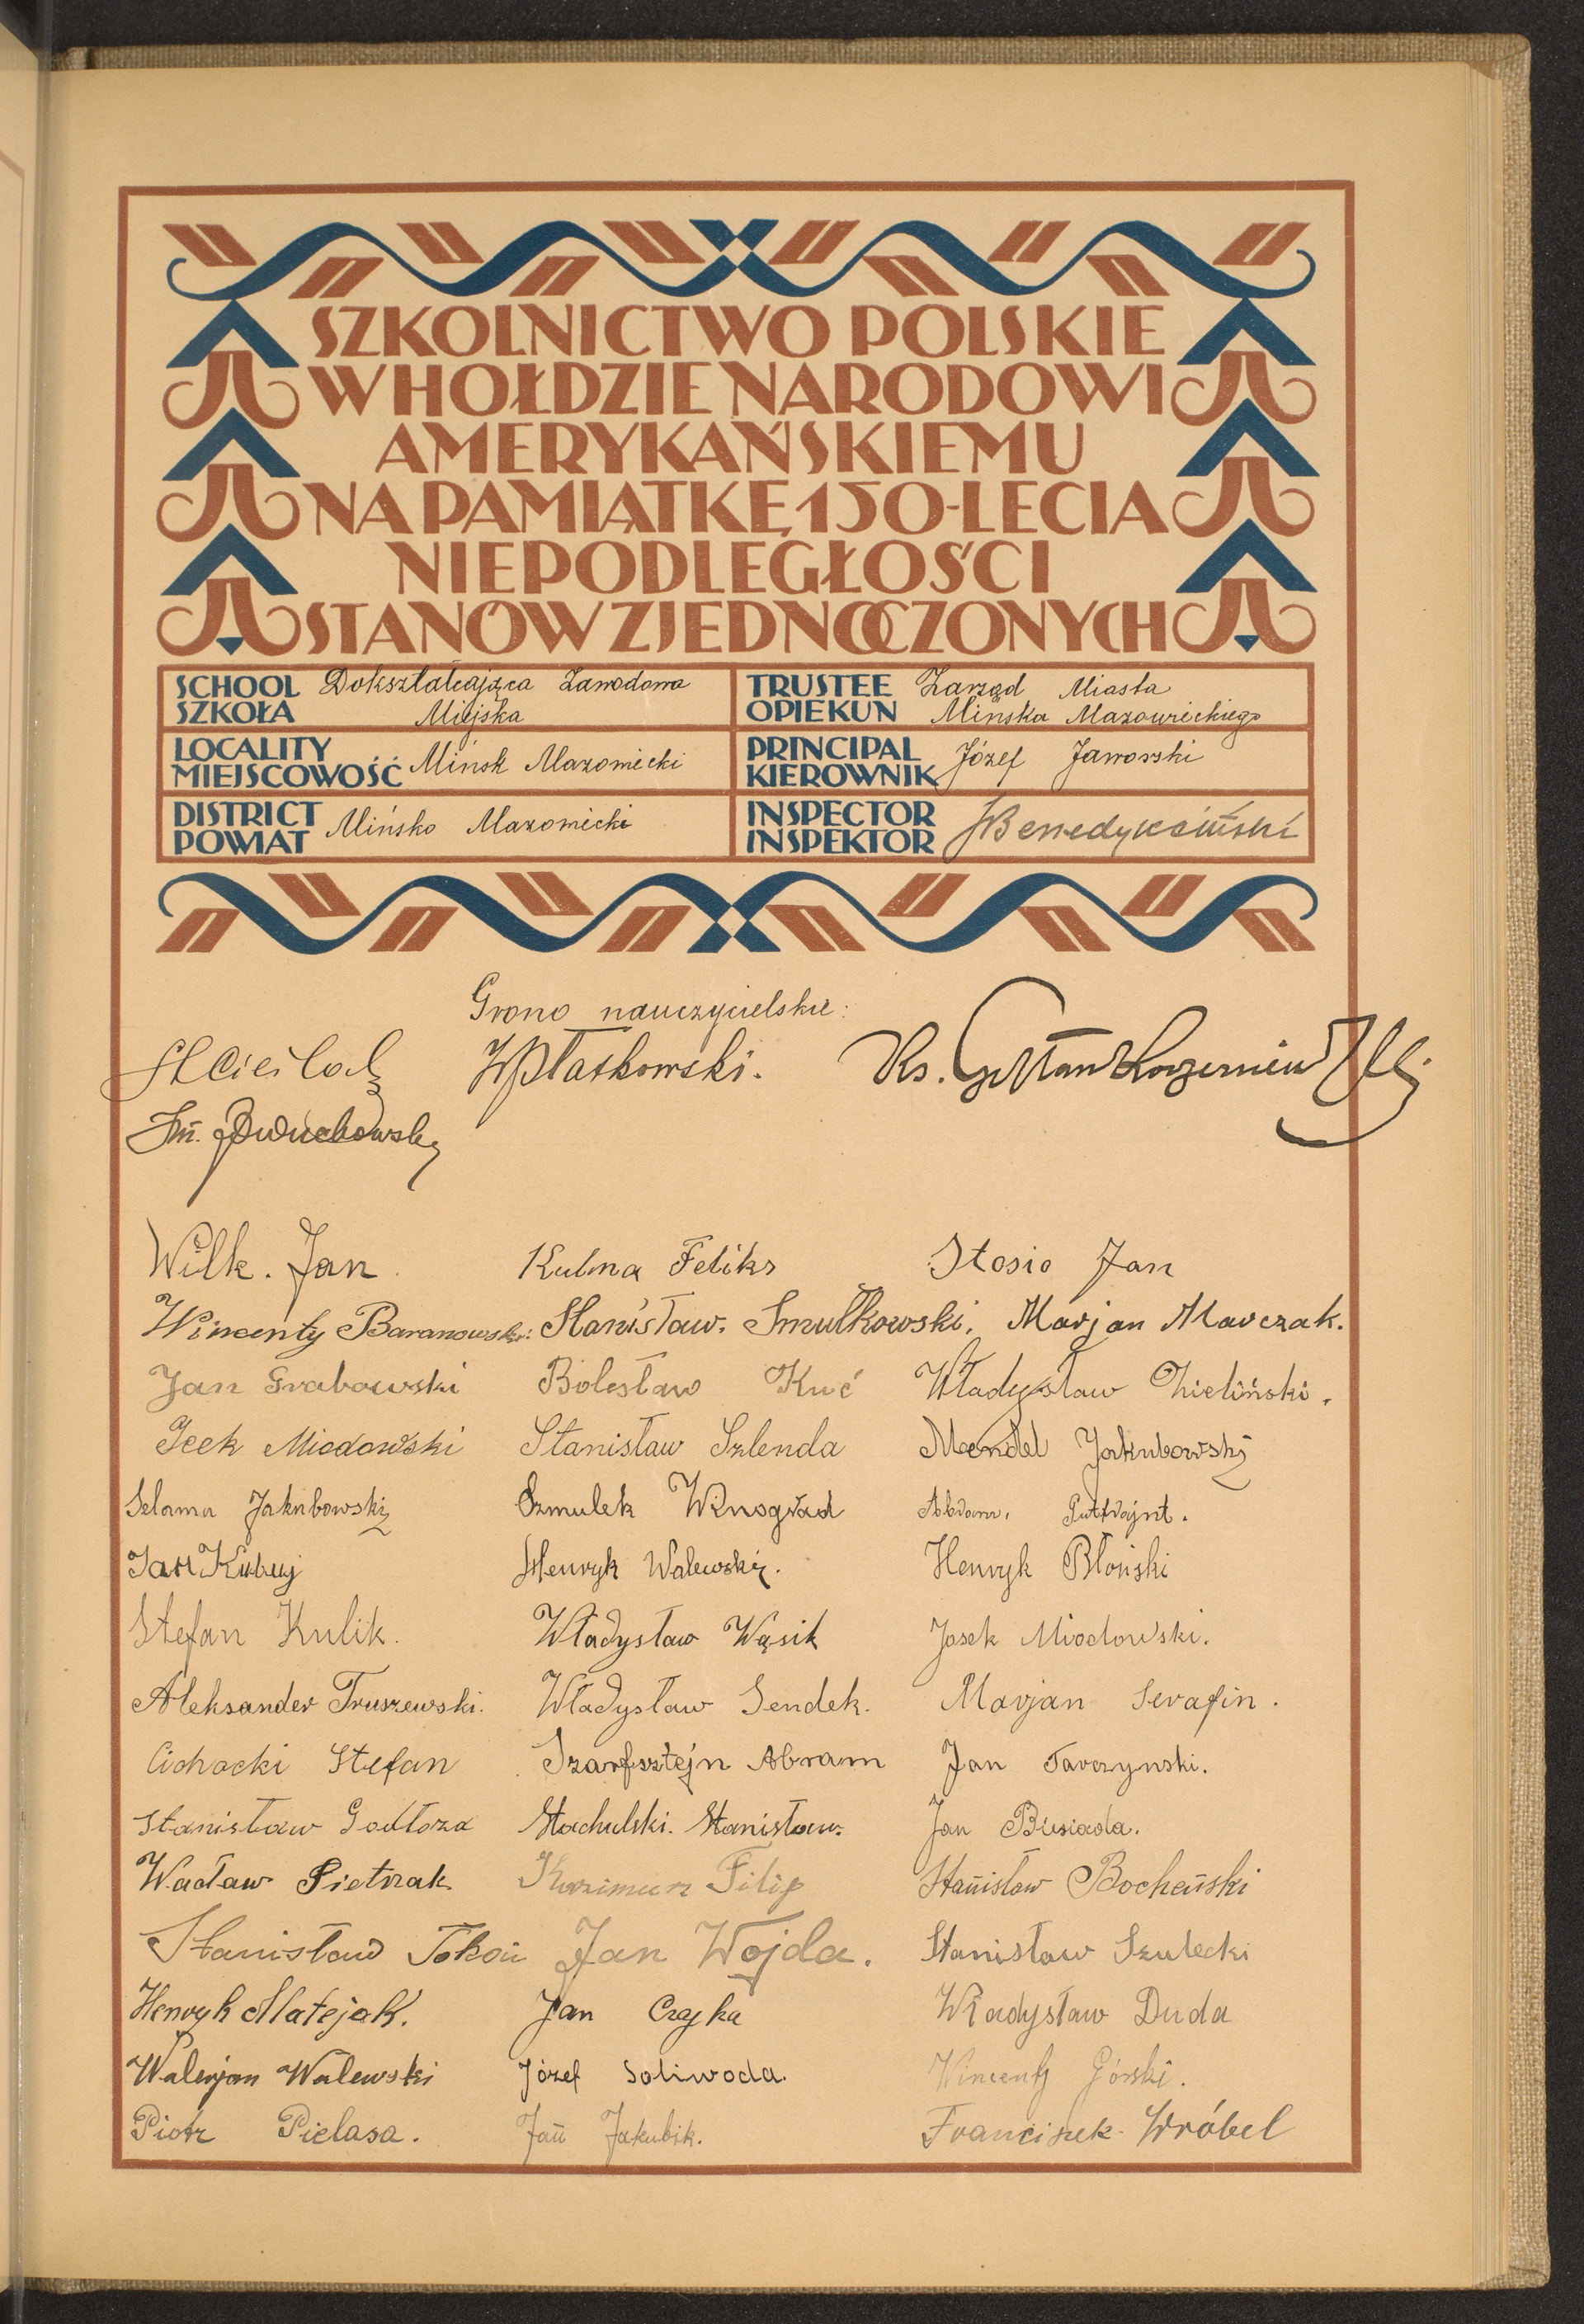 SZKOLNICTWO POLSKIE
W HOŁDZIE NARODOWI
AMERYKAŃSKIEMU
NA PAMIĄTKĘ 150-LECIA
NIEPODLEGŁOŚCI
STANÓW ZJEDNOCZONYCH
SCHOOL SZKOŁA Dokształcająca Zawodowa
Miejska
TRUSTEE OPIEKUN Zarząd Miasta
Mińska Mazowieckiego
LOCALITY MIEJSCOWOŚĆ Mińsk Mazowiecki
PRINCIPAL KIEROWNIK Józef Jaworski
DISTRICT POWIAT Mińsko Mazowiecki
INSPECTOR INSPEKTOR
Grono nauczycielskie:
WPłatkowski. Ks.
Wilk. Jan Kulma Feliks Stosio Jan
Wincenty Baranowski. Stanisław. Smulkowski. Marjan Marczak.
Jan Grabowski Bolesław Kuć Władysław Zieliński.
Icek Miodowski Stanisław Szlenda Mendel Jakubowski
Szlama Jakubowski Szmulek Winograd
Jan Kubuj Henryk Walewski. Henryk Błoński
Stefan Kulik. Władysław Wąsik Josek Miodowski.
Aleksander Truszewski. Władysław Sendek. Marjan Serafin.
Cichocki Stefan Szarfsztejn Abram Jan Tarczynski.
Stanisław Godłoza Stachulski. Stanisław. Jan Biesiada.
Wacław Pietrzak Kazimierz Filip Stanisław Bocheński
Stanisław Tokań Jan Wojda. Stanisław Szulecki
Henryk Matejak. Jan Czajka Władysław Duda
Walerjan Walewski Józef Soliwoda. Wincenty Górski.
Piotr Pielasa. Jan Jakubik. Franciszek Wróbel